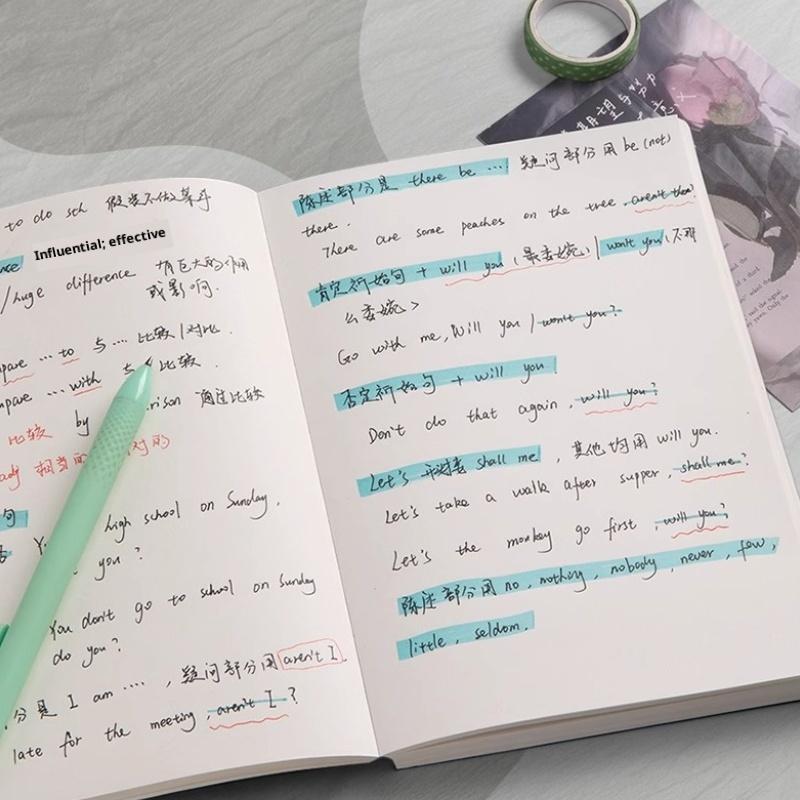 to do sth 假装不做某事
Influential; effective
ence
/huge difference 有巨大的作用
或影响.
mpare ... to 与 ... 比较 | 对比.
mpare ... with 与 比较.
比较 by rison 通过比较
adj 相当的 对的
句
high school on Sunday,
you?
You don't go to school on Sunday
do you?
分是 I am ...., 疑问部分用 aren't I.
late for the meeting, aren't I?
陈述部分是 there be ... 疑问部分用 be (not)
there.
There are some peaches on the tree, aren't there?
肯定祈使句 + will you (最委婉) | won't you (不那
么委婉>
Go with me, Will you | won't you?
否定祈使句 + will you
Don't do that again, will you?
Let's 开头表 shall me, 其他均用 will you.
Let's take a walk after supper, shall me?
Let's the monkey go first, will you?
陈述部分用 no, nothing, nobody, never, few,
little, seldom.